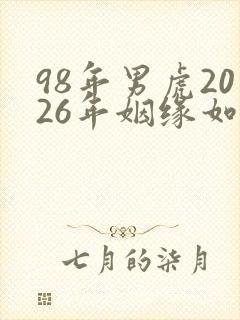 98年男虎20
26年姻缘如
七月的柒月